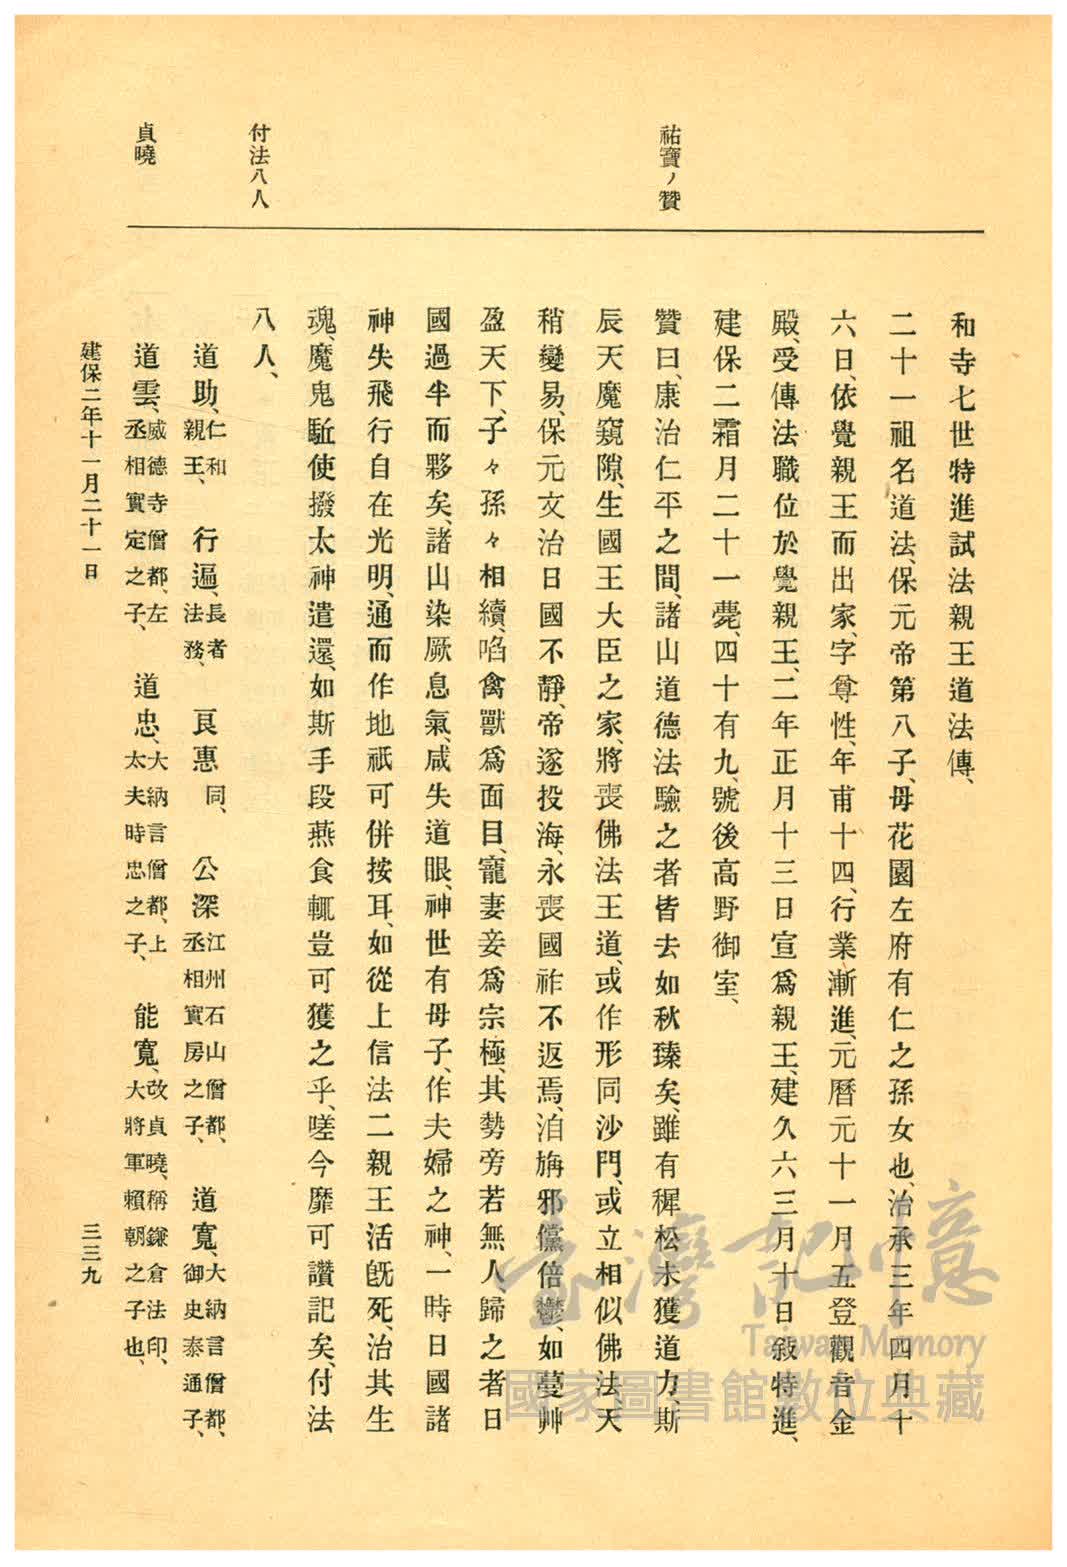 祐寶ノ贊
付法八人
貞曉
和寺七世特進試法親王道法傳、
二十一祖名道法、保元帝第八子、母花園左府有仁之孫女也、治承三年四月十
六日、依覺親王而出家、字尊性、年甫十四、行業漸進、元曆元十一月五登觀音金
殿、受傳法職位於覺親王、二年正月十三日宣爲親王、建久六三月十日敍特進、
建保二霜月二十一薨、四十有九、號後高野御室、
贊曰、康治仁平之間、諸山道德法驗之者皆去如秋臻矣、雖有穉松未獲道力、斯
辰天魔窺隙、生國王大臣之家、將喪佛法王道、或作形同沙門、或立相似佛法、天
稍變易、保元文治日國不靜、帝遂投海、永喪國祚不返焉、洎旃邪儻倍鬱、如蔓艸
盈天下、子々孫々相續、啗禽獸爲面目、寵妻妾爲宗極、其勢旁若無人歸之者日
國過半而夥矣、諸山染厥息氣、咸失道眼、神世有母子、作夫婦之神、一時日國諸
神失飛行自在光明、通而作地祇可併按耳、如從上信法二親王活旣死、治其生
魂、魔鬼駈使撥太神遣還、如斯手段燕食輒豈可獲之乎、嗟今靡可讚記矣、付法
八人、
道助、仁和親王、 行遍、長者法務、 良惠同、 公深江州石山僧都、丞相實房之子、 道寬、大納言僧都、御史泰通子、
道雲、威德寺僧都、左丞相實定之子、 道忠、大納言僧都、上太夫時忠之子、 能寬、改貞曉、稱鎌倉法印、大將軍賴朝之子也、
建保二年十一月二十一日
三三九
臺灣記憶
Taiwan Memory
國家圖書館數位典藏